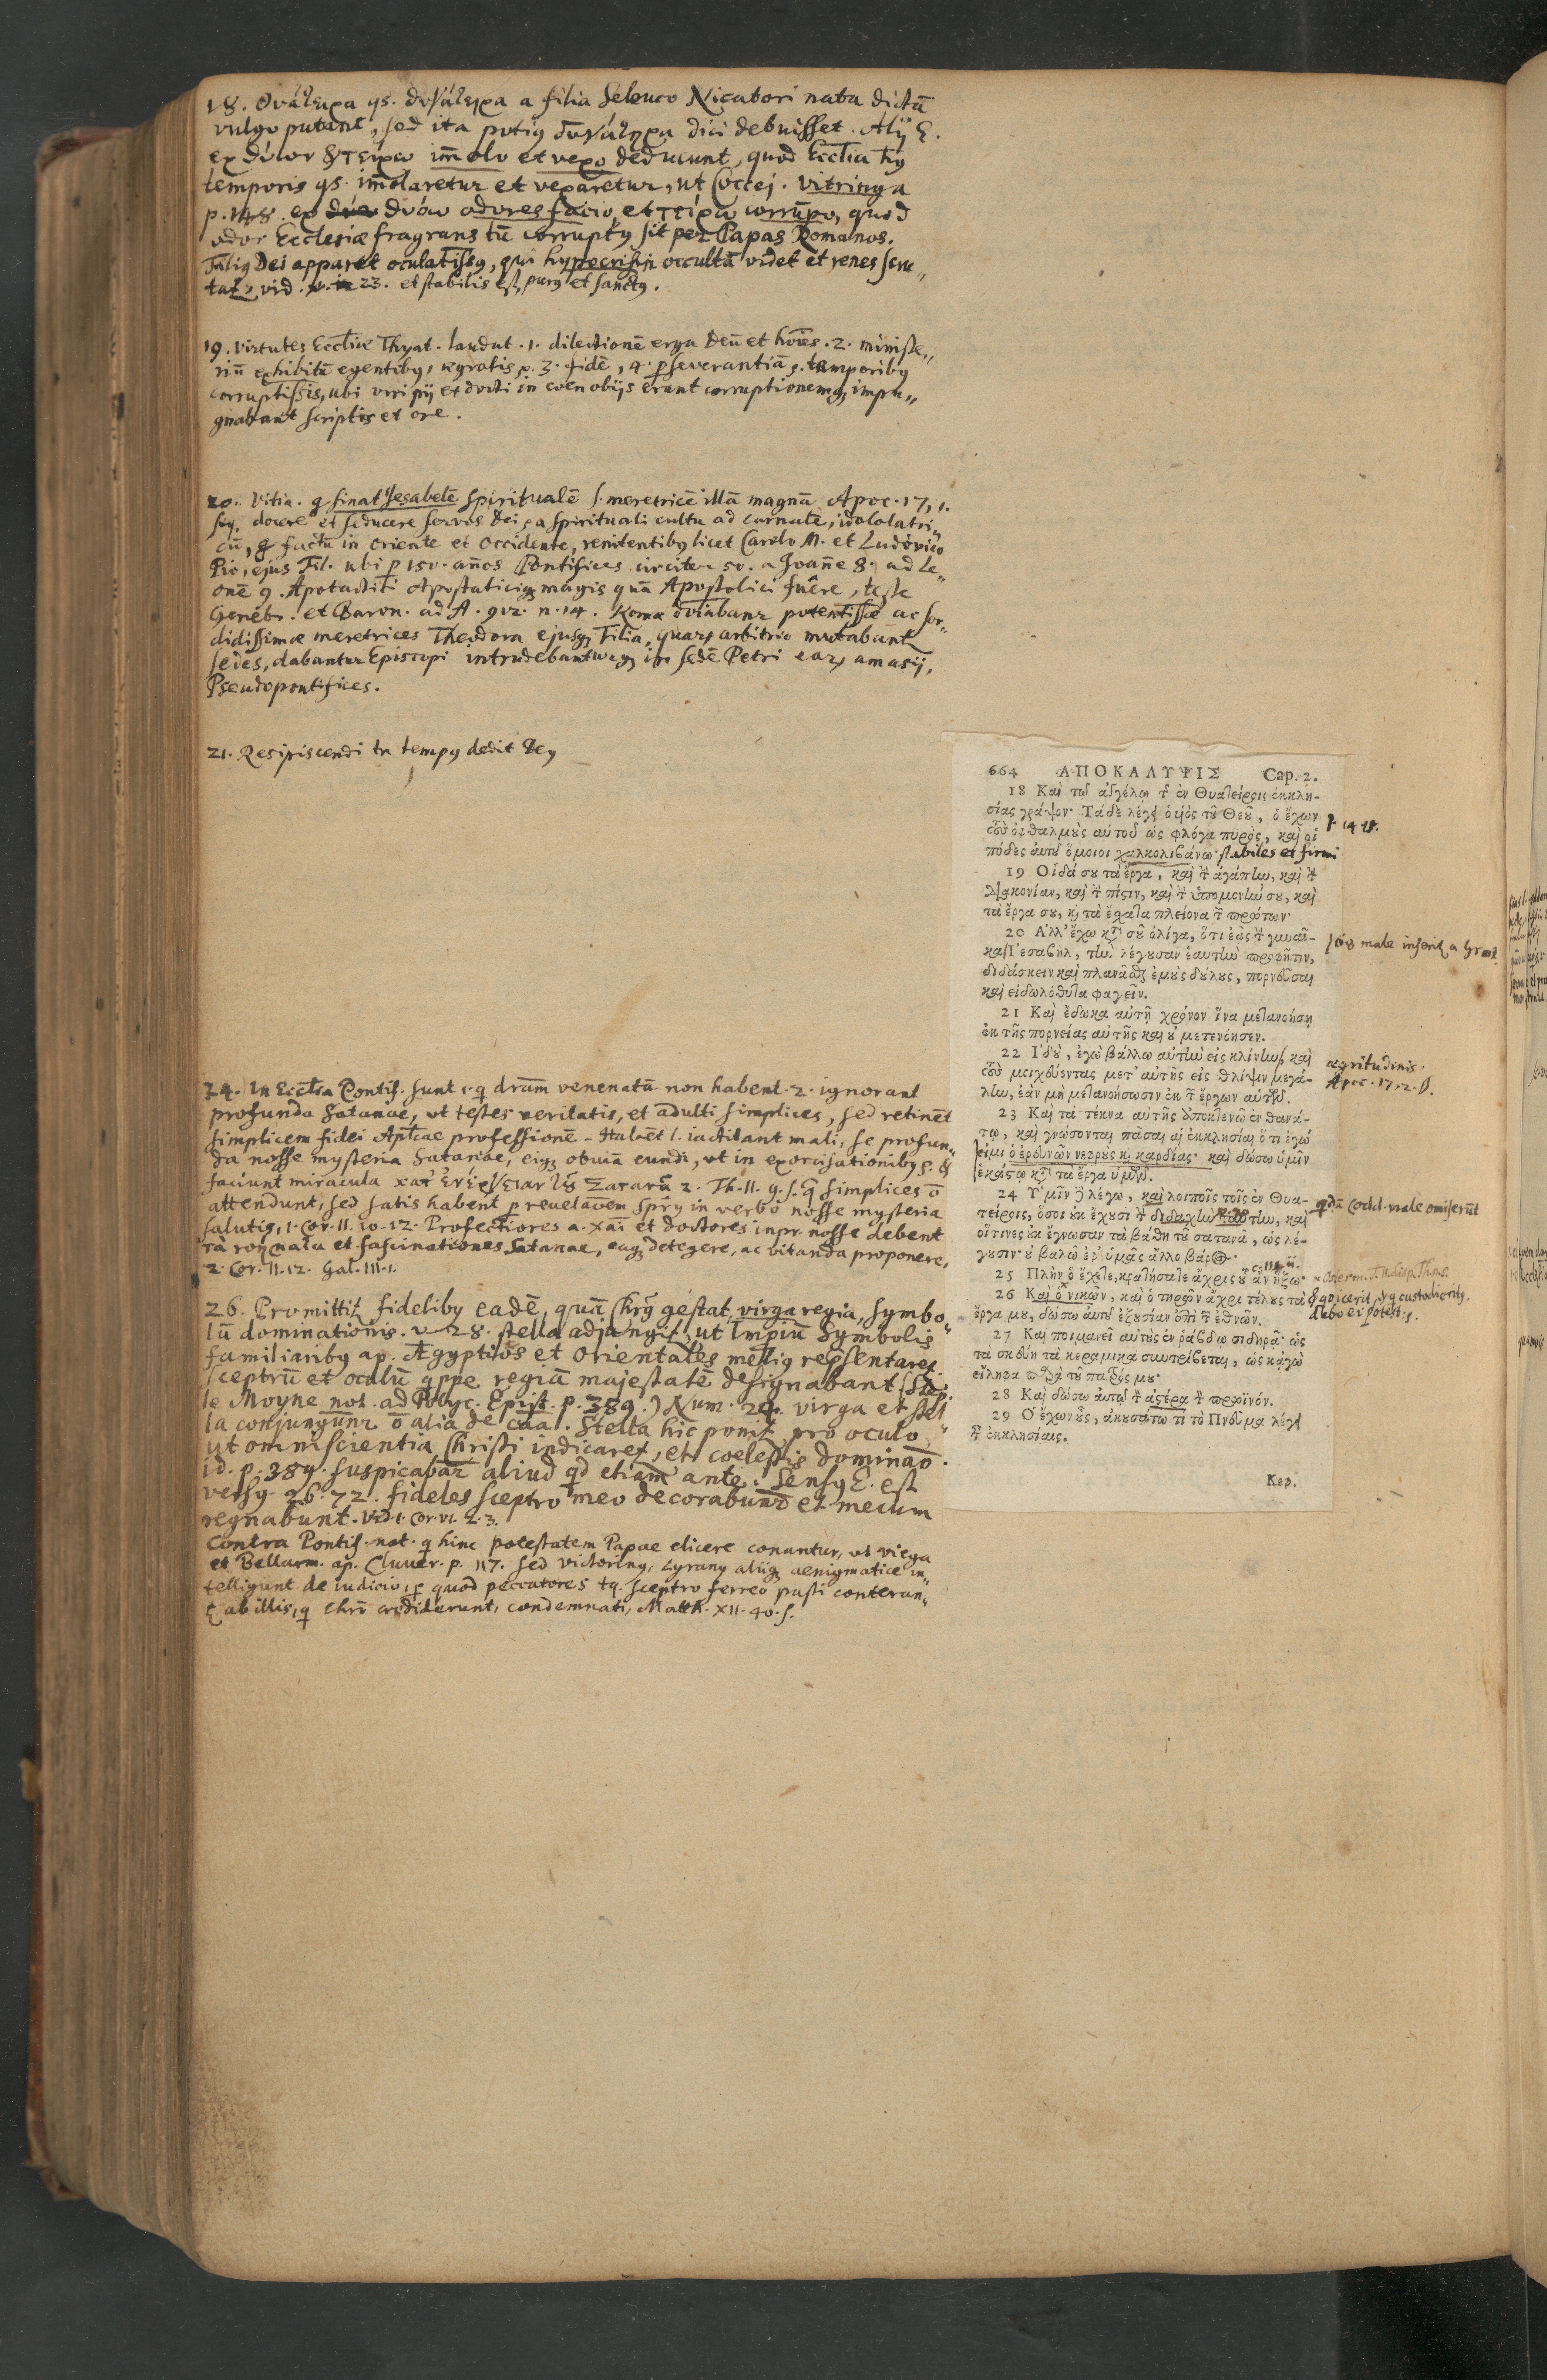 18. Θυάτειρα qs. θυγάτειρα a filia Seleuco Nicatori nata dictū
vulgo putant, sed ita potiꝰ θυγάτηρα dici debuisset. Alij E.
ex θύων & τείρω im̄olo et vexo deducunt, quod Ecclīa hꝰ
temporis qs. im̄olaretur et vexaretur, ut Coccej. Vitringa
p. 148. ex θυόω odores facio, et τείρω corrūpo, quod
odor Ecclesiæ fragrans tū corruptꝰ sit per Papas Romanos.
Taliꝰ Dei apparet oculatissꝰ, qui hypocrisin occultā videt et renes scru„
tat, vid. 23. et stabilis est, purꝰ et sanctꝰ.
19. Virtutes Ecclīæ Thyat. laudat. 1. dilectionē erga Deū et hoīes. 2. ministe„
riū exhibitū egentibꝰ, ægrotis, 3. fidē, 4. pseverantiā, temporibꝰ
corruptissis, ubi viri pij et docti in coenobijs erant corruptionemq impu„
gnabant scriptis et ore.
20. Vitia. q sinat Jesabelē spiritualē s. meretricē illā magnā Apoc. 17, 1.
seq. docere et seducere servos Dei, a spirituali cultu ad carnalē, idololatri„
cū, q factū in Oriente et Occidente, renitentibꝰ licet Carolo M. et Ludovico
Pio, ejus Fil. ubi p 150. años Pontifices circiter 50. a Joañe 8. ad Le„
onē 9. Apotactiti Apostaticiq magis quā Apostolici fuêre, teste
Genebr. et Baron. ad A. 912. n. 14. Romæ potentissæ ac sor„
didissimæ meretrices Theodora ejusq Filia, quarꝝ arbitrio mutabant
sedes, dabantur Episcopi intrudebanturq in sedē Petri earꝝ amasij,
Pseudopontifices.
21. Resipiscendi tn tempꝰ dedit Deꝰ
24. In Eccl̄ia Pontif. sunt 1. q dr̄am venenatā non habent. 2. ignorant
profunda Satanae, ut testes veritatis, et adulti simplices, sed retinēt
simplicem fidei Aptl̄cae professionē. s. iactitant mali, se profun„
da nosse mysteria Satanae, eiqꝫ obviā eundi, ut in exorcisationibꝰ s. &
faciunt miracula κατ' ἐνέργειαν τοῦ Σατανᾶ 2. Th. II. 9. s. q̄ simplices ō
attendunt, sed satis habent p revelaōem Spr̄ꝰ in verbo nosse mysteria
salutis, 1. Cor. II. 10. 12. Profectiores a. χαι et doctores inpr. nosse debent
τὰ νοήματα et fascinationes Satanae, easqꝫ detegere, ac vitanda proponere,
2. Cor. II. 12. Gal. III. 1.
26. Promittit fidelibꝰ eadē, quā Chrꝰ gestat, virga regia, symbo„
lū dominationis. v 28. stella adjungit, ut Impiū Symbolis
familiaribꝰ ap. Ægyptios et Orientales meliꝰ repsentaret.
Sceptrū et oculū qppe regiā majestatē designabant (Step.
le Moyne not. ad Polyc. Epist. p. 389.) Num. 24. virga et stel„
la conjungunr ō alia de caā. Stella hic ponit pro oculo,
ut omniscientia Christi indicaret, et coelestis dominaō.
id. p. 389. suspicabar aliud qd etiam ante. Sensꝰ E. est
versꝰ 26. 72. fideles sceptro meo decorabunt et mecum
regnabunt. Vid. 1. Cor. VI. 2. 3.
Contra Pontif. not. q hinc potestatem Papae elicere conantur, ut Viega
et Bellarm. ap. Cluver. p. 117. sed Victorinꝰ, Lyranꝰ aliiqꝫ aenigmatice in„
telligunt de iudicio, p quod peccatores tq. sceptro ferreo pasti conteran„
t ab illis, q Chrō crediderunt, condemnati, Matth. XII. 40. s.
664 ΑΠΟΚΑΛΥΨΙΣ Cap. 2.
18 Καὶ τῷ ἀγγέλῳ τ῀ ἐν Θυατείροις ἐκκλη-
σίας γράψον· Τάδε λέγει ὁ υἱὸς τοῦ Θεοῦ, ὁ ἔχων
τοὺς ὀφθαλμοὺς αὐτοῦ ὡς φλόγα πυρὸς, καὶ οἱ
πόδες αὐτοῦ ὅμοιοι χαλκολιβάνῳ· stabiles et firmi
1. 14. 15.
19 Οἶδά σου τὰ ἔργα, καὶ τ῀ ἀγάπην, καὶ τ῀
διακονίαν, καὶ τ῀ πίστιν, καὶ τ῀ ὑπομονήν σου, καὶ
τὰ ἔργα σου, κ̀ τὰ ἔσχατα πλείονα τ῀ πρώτων·
20 Ἀλλ' ἔχω κτ῀ σοῦ ὀλίγα, ὅτι ἐᾷς τ῀ γυναῖ-
κα Ἰεσαβὴλ, τὴν λέγουσαν ἑαυτὴν προφῆτιν,
διδάσκειν καὶ πλανᾶσθαι ἐμοὺς δούλους, πορνεῦσαι
καὶ εἰδωλόθυτα φαγεῖν.
σου male inserit a Grot.
21 Καὶ ἔδωκα αὐτῇ χρόνον ἵνα μετανοήσῃ
ἐκ τῆς πορνείας αὐτῆς καὶ οὐ μετενόησεν.
22 Ἰδοὺ, ἐγὼ βάλλω αὐτὴν εἰς κλίνην, καὶ
τοὺς μοιχεύοντας μετ' αὐτῆς εἰς θλίψιν μεγά-
λην, ἐὰν μὴ μετανοήσωσιν ἐκ τ῀ ἔργων αὐτῶν.
ægritudinis.
Apoc. 17. 2.
23 Καὶ τὰ τέκνα αὐτῆς ἀποκτενῶ ἐν θανά-
τῳ, καὶ γνώσονται πᾶσαι αἱ ἐκκλησίαι ὅτι ἐγώ
εἰμι ὁ ἐρευνῶν νεφροὺς κ̀ καρδίας· καὶ δώσω ὑμῖν
ἑκάστῳ κτ῀ τὰ ἔργα ὑμῶν.
24 Ὑμῖν ϳ λέγω, καὶ λοιποῖς τοῖς ἐν Θυα-
τείροις, ὅσοι οὐκ ἔχουσι τ῀ διδαχὴν ταύτην, καὶ
οἵτινες οὐκ ἔγνωσαν τὰ βάθη τοῦ σατανᾶ, ὡς λέ-
γουσιν· οὐ βαλῶ ἐφ' ὑμᾶς ἄλλο βάρος·
qdā Codd. male omiserūt
25 Πλὴν ὃ ἔχετε, κρατήσατε ἄχρις οὗ ἂν ἥξω·
26 Καὶ ὁ νικῶν, καὶ ὁ τηρῶν ἄχρι τέλους τὰ
ἔργα μου, δώσω αὐτῷ ἐξουσίαν ἐπὶ τ῀ ἐθνῶν.
& q vicerit, & q custodierit,
dabo ei potest.
27 Καὶ ποιμανεῖ αὐτοὺς ἐν ῥάβδῳ σιδηρᾷ· ὡς
τὰ σκεύη τὰ κεραμικὰ συντρίβεται, ὡς κἀγὼ
εἴληφα παρὰ τοῦ πατρός μου·
28 Καὶ δώσω αὐτῷ τ῀ ἀστέρα τ῀ πρωϊνόν.
29 Ὁ ἔχων οὖς, ἀκουσάτω τί τὸ Πνεῦμα λέγει
τ῀ ἐκκλησίαις.
Κεφ.